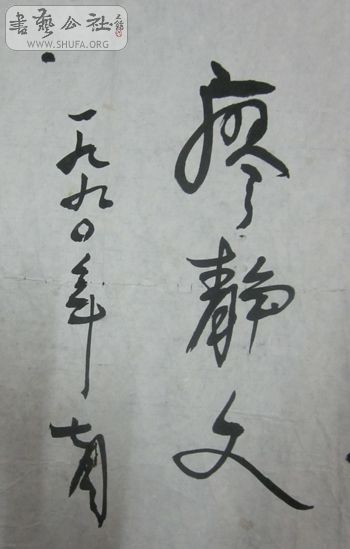 書藝公社
WWW.SHUFA.ORG
廖静文
一九九〇年七月